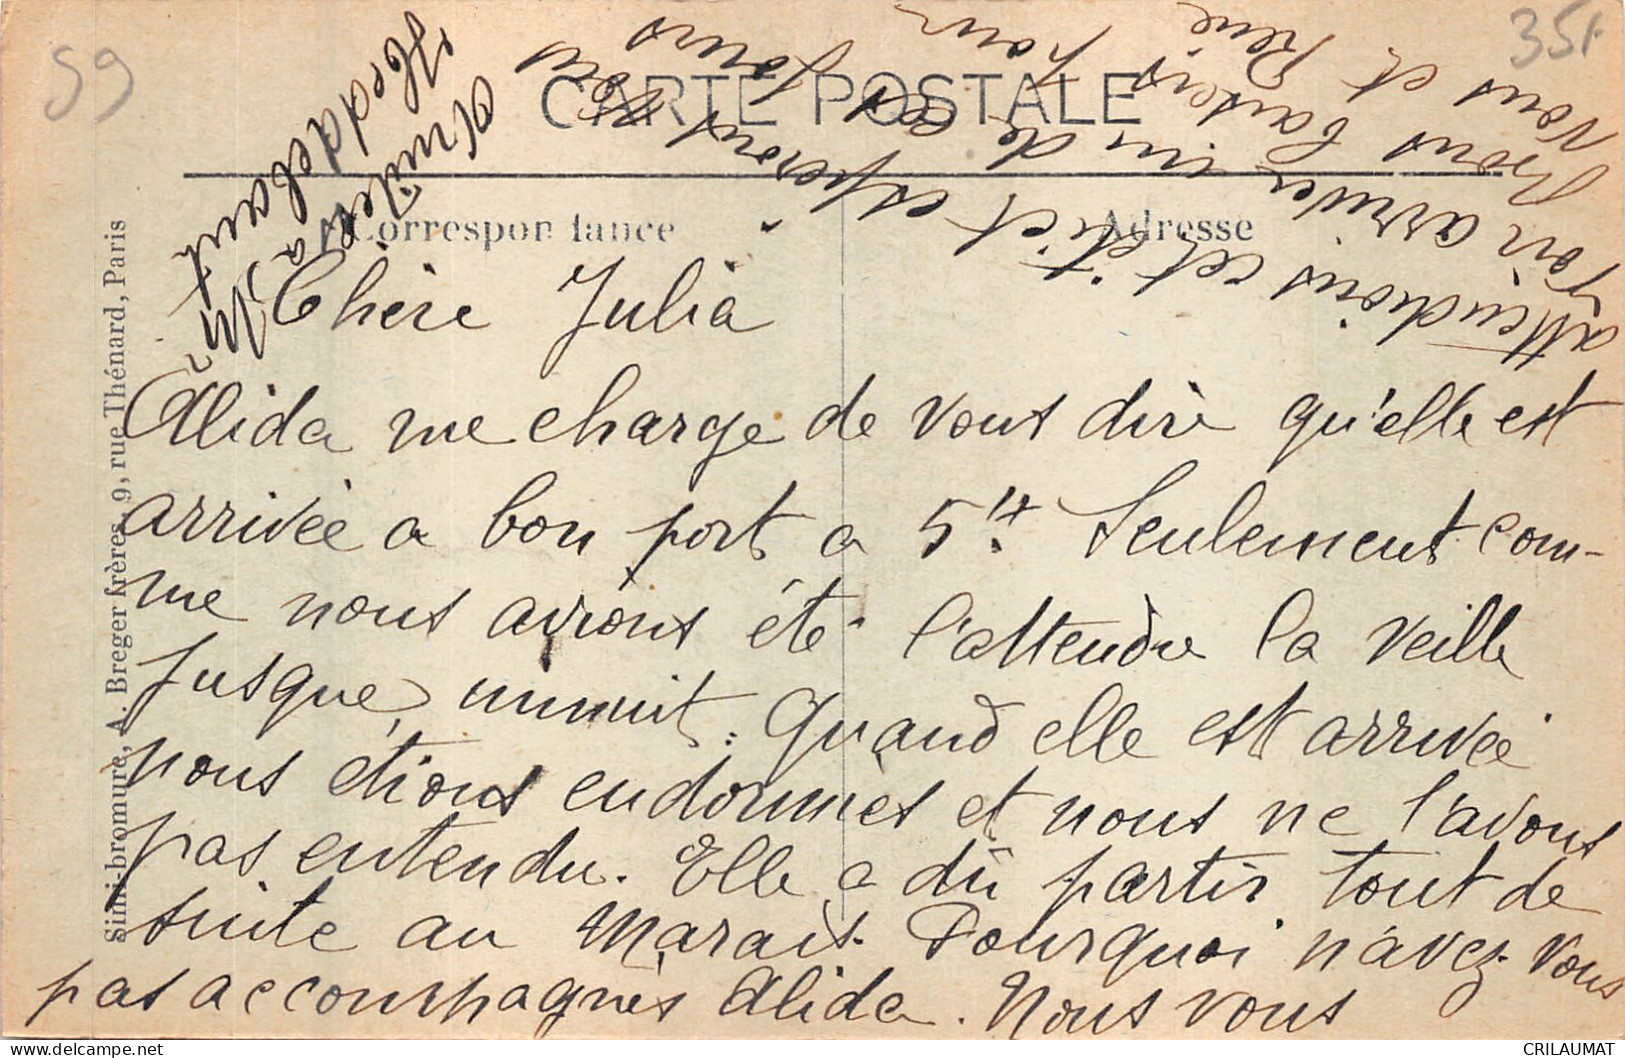 59
35F
CARTE POSTALE
Correspondance
Adresse
Simi-bromure, A. Breger frères, 9, rue Thénard, Paris
Chère Julia
Alida me charge de vous dire qu'elle est
arrivée a bon port a 5H. Seulement com-
me nous avions été l'attendre la veille
jusque minuit. Quand elle est arrivée
nous étions endormies et nous ne l'avons
pas entendu. Elle a dû partir tout de
suite au Marais. Pourquoi n'avez-vous
pas accompagnés Alida. Nous vous
attendions cet été et espérons vous
voir arriver un de ces jours
Bons baisers pour
vous et René
Amitiés a Mr
Heddebaut
CRILAUMAT